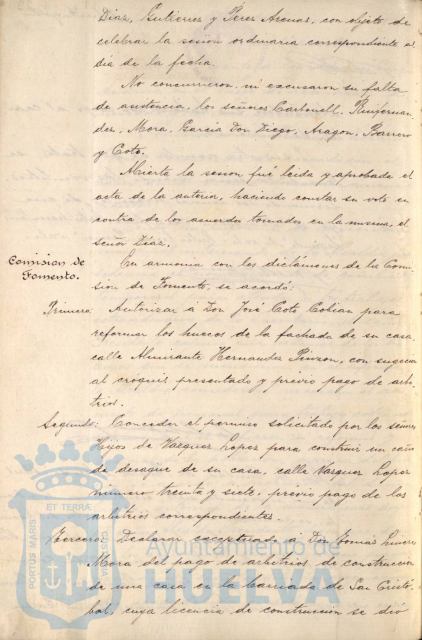 Diaz, Gutierrez y Perez Arenas, con objeto de
celebrar la sesion ordinaria correspondiente al
dia de la fecha.
No concurrieron, ni excusaron su falta
de asistencia, los señores Carbonell,
dez, Mora, Garcia Don Diego, Aragon, Barrero
y Coto.
Abierta la sesion, fué leida y aprobada el
acta de la anterior, haciendo constar su voto en
contra de los acuerdos tomados en la misma, el
señor Díaz.
Comision de
Fomento.
En armonia con los dictámenes de la Comi
sion de Fomento, se acordó:
Primero: Autorizar á Don José Coto Cobian para
reformar los huecos de la fachada de su casa,
calle Almirante Hernandez Pinzon, con sugecion
al croquis presentado y previo pago de arbi
trios.
Segundo: Conceder el permiso solicitado por los señores
Hijos de Vazquez Lopez para construir un caño
de desagüe de su casa, calle Vazquez Lopez
número treinta y siete, previo pago de los
arbitrios correspondientes.
Tercero: Declarar exceptuado a Don Tomas
Mora del pago de arbitrios de construccion
de una casa en la barriada de San Cristó
bal, cuya licencia de construccion se dió
PORTUS MARIS ET TERRAE CUSTODIA
Ayuntamiento de
HUELVA